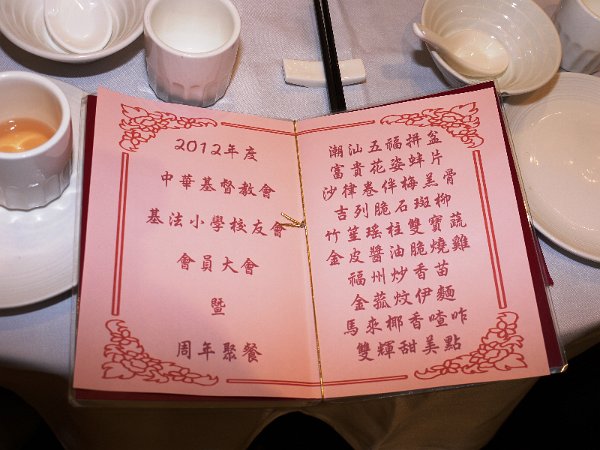 2012年度
中華基督教會
基法小學校友會
會員大會
暨
周年聚餐
潮汕五福拼盆
富貴花姿蚌片
沙律卷伴梅羔骨
吉列脆石斑柳
竹笙瑤柱雙寶蔬
金皮醬油脆燒雞
福州炒香苗
金菰炆伊麵
馬來椰香喳咋
雙輝甜美點